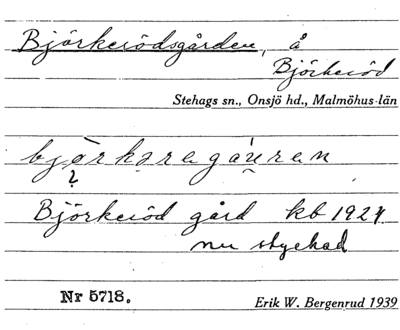 Björkerödsgården, å
Björkeröd
Stehags sn., Onsjö hd., Malmöhus-län
Björkeröd gård kb 1924
nu styckad
Nr 5718.
Erik W. Bergenrud 1939